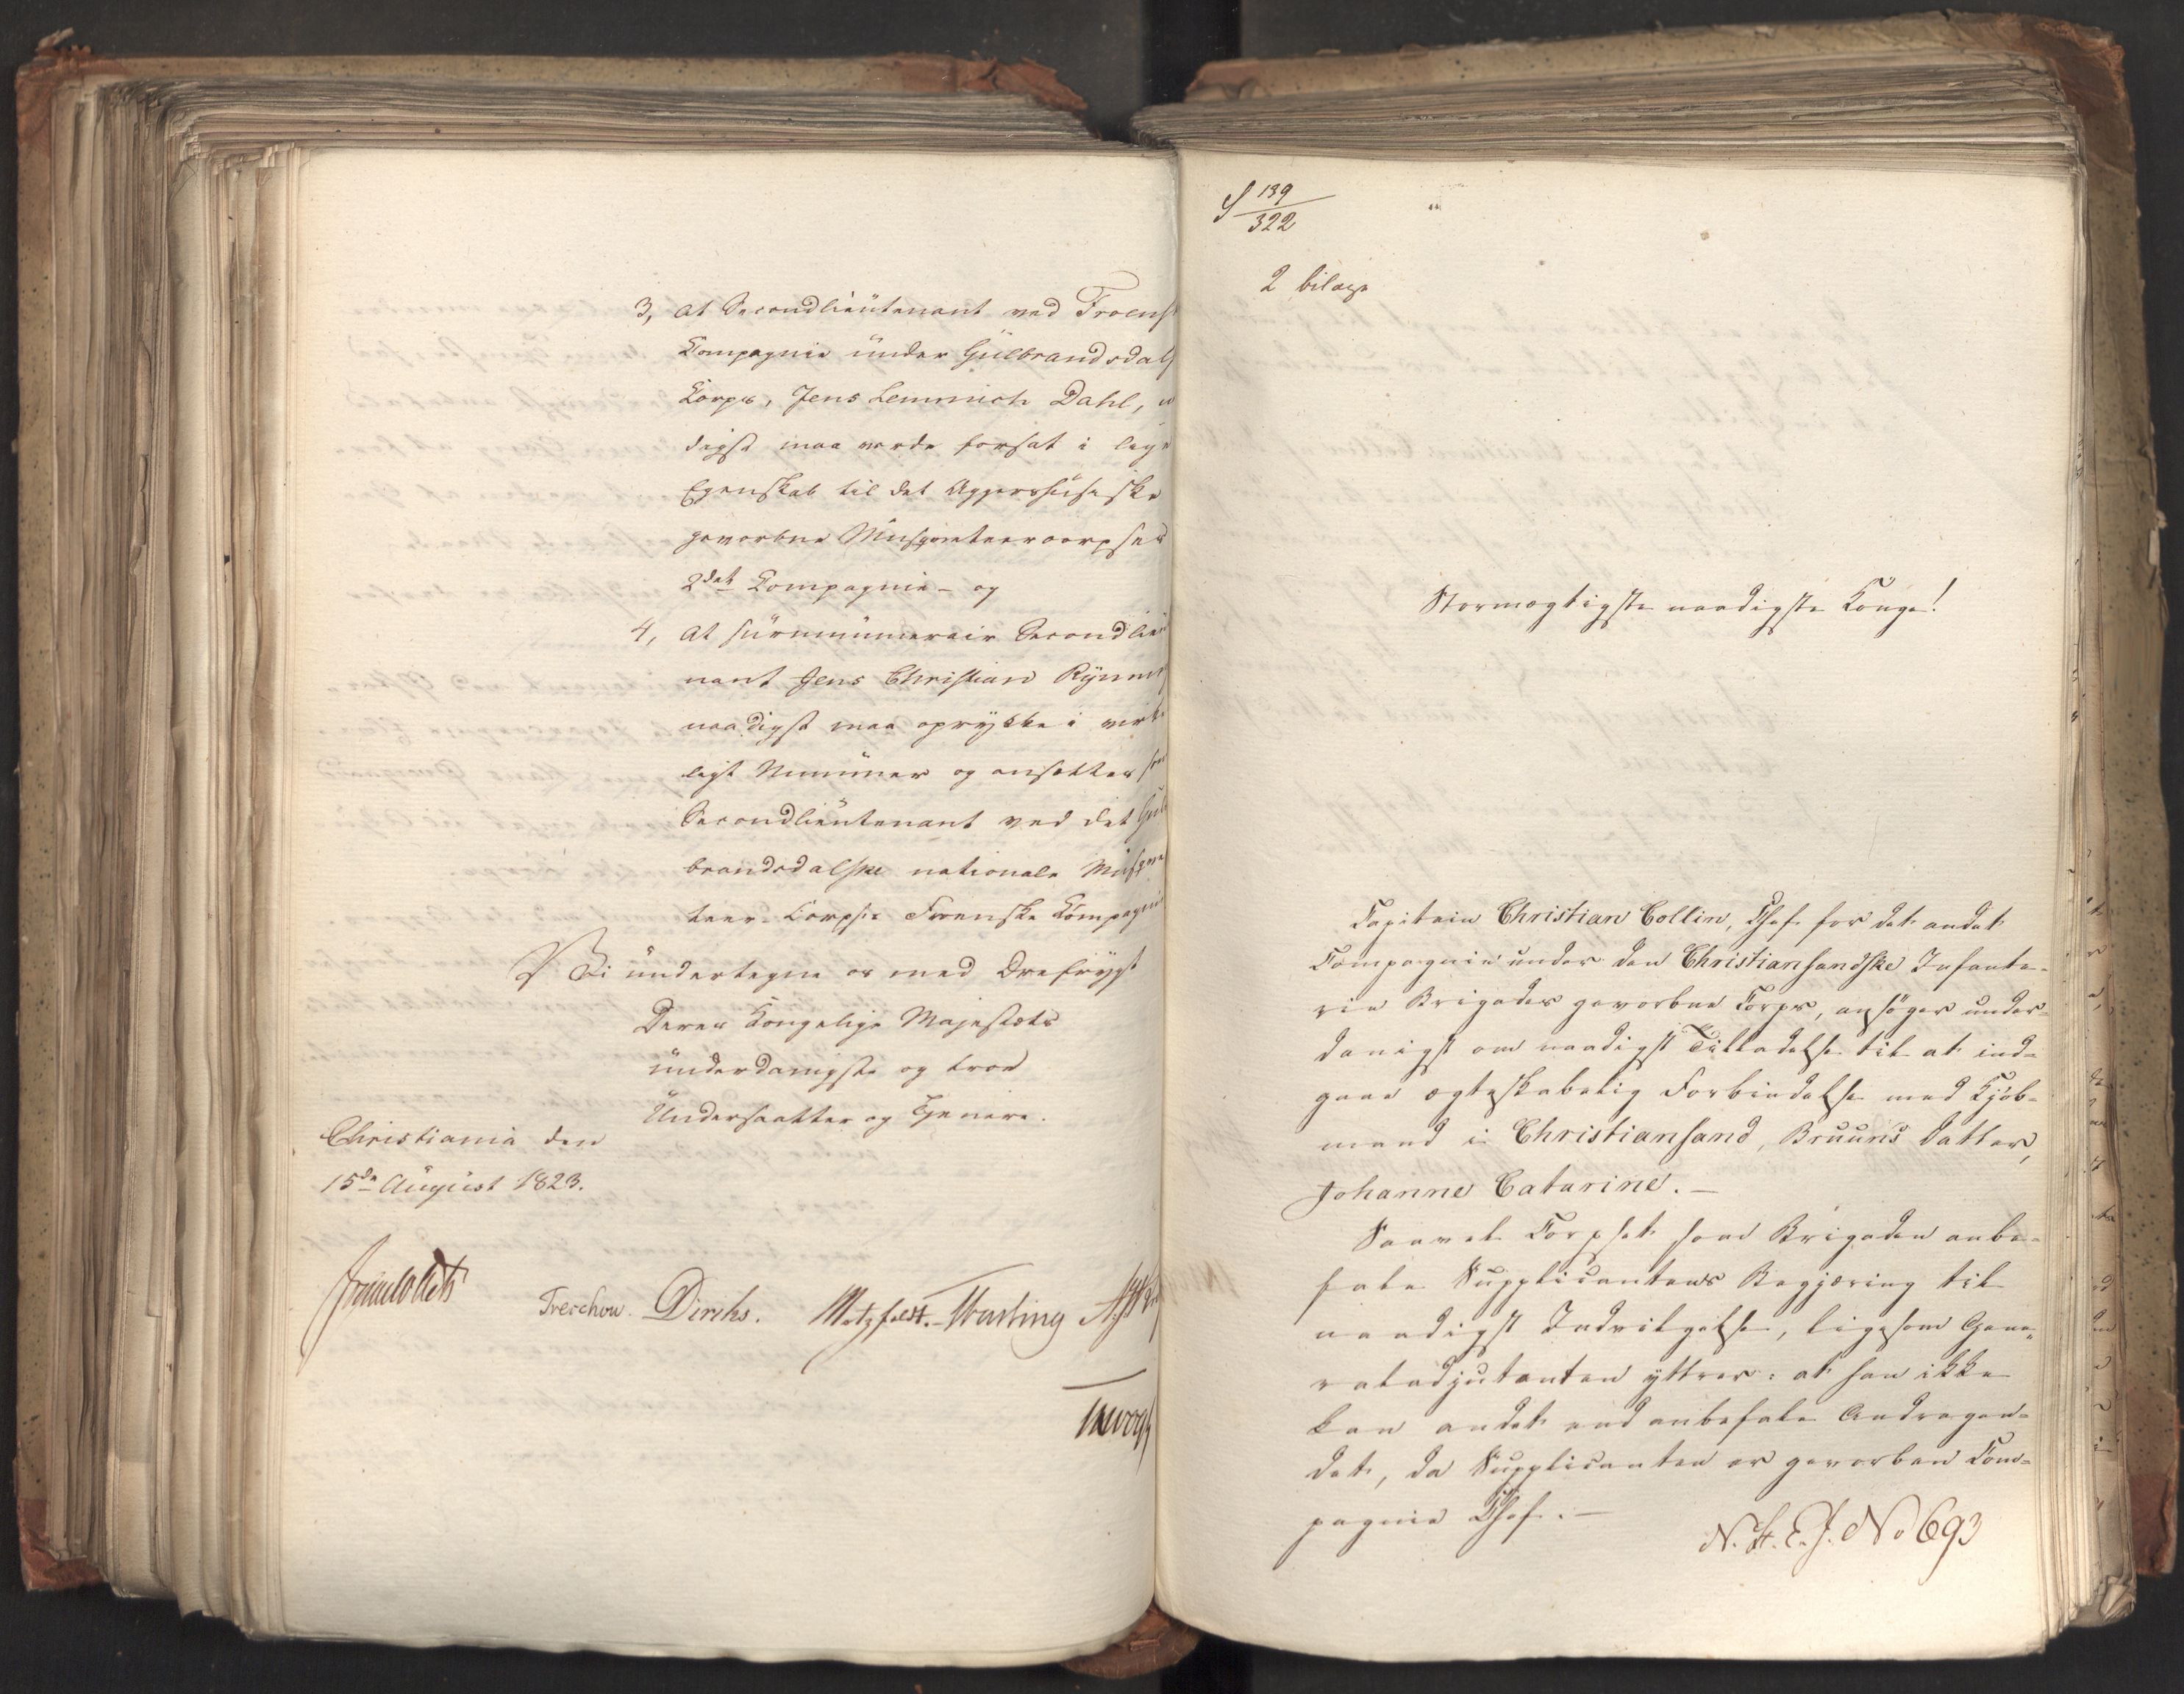 3, at Secondlieutenant ved Froensk
Compagnie under Gulbrandsdals
Corps, Jens Lemmich Dahl, 
digst maa vorde forsat i lige
Egenskab til det Aggershusiske
gevorbne Musqueteercorpses
2det Compagnie - og
4, at surnumerair Secondlieu
nant Jens Christian Rynning
naadigst maa oprykke i virke
ligt Nummer og ansættes som
Secondlieutenant ved det Gul
brandsdalske nationale Musque
teer-Corps's Froenske Compagnie
Vi undertegne os med Ærefrygt
Deres Kongelige Majestæts
underdanigste og troe
Undersaatter og Tjenere.
Christiania den
15de August 1823.
Treschow. Diriks. Motzfeldt.
S 139
322
2 bilage
Stormægtigste naadigste Konge!
Capitain Christian Collin, Chef for det andet
Compagnie under den Christiansandske Infante-
rie Brigades gevorbne Corps, ansøger under-
danigst om naadigst Tilladelse til at ind-
gaae ægteskabelig Forbindelse med Kjøb-
mand i Christiansand, Bruuns Datter,
Johanne Catarine. —
Saavel Corpset som Brigaden anbe-
fale Supplicantens Begjæring til
naadigst Indvilgelse, ligesom Gene-
raladjutanten yttrer: at han ikke
kan andet end anbefale Andragen-
det, da Supplicanten er gevorben Com-
pagnie Chef. —
N. H. E. J. No 693